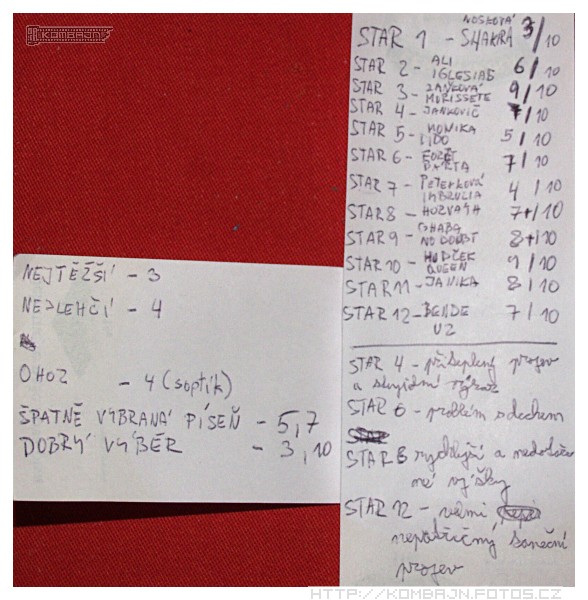 KOMBAJN
NOSKOVÁ
STAR 1 - SHAKIRA 3/10
STAR 2 - ALI
IGLESIAS 6/10
STAR 3 - ZAŇKOVÁ
MORISSETE 9/10
STAR 4 - JANKOVIČ 7/10
STAR 5 - MONIKA
LIDO 5/10
STAR 6 - 7/10
STAR 7 - PETERKOVÁ
IMBRULIA 4/10
STAR 8 - HORVÁTH 7+/10
STAR 9 - CHABA
NO DOUBT 8+/10
STAR 10 - HUDČEK
QUEEN 9/10
STAR 11 - JANIKA 8/10
STAR 12 - BENDE
U2 7/10
STAR 4 - přiteplený projev
a stupidní výraz
STAR 6 - problém s dechem
STAR 8 rychlejší a
výšky
STAR 12 - velmi
nepatřičný taneční
projev
NEJTĚŽŠÍ - 3
NEJLEHČÍ - 4
OHOZ - 4 (šoptík)
ŠPATNĚ VYBRANÁ PÍSEŇ - 5,7
DOBRÝ VÝBĚR - 3,10
HTTP://KOMBAJN.FOTOS.CZ